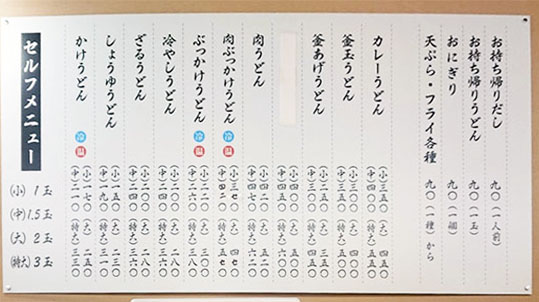 お持ち帰りだし 九〇(一人前)
お持ち帰りうどん 九〇(一玉)
おにぎり 九〇(一個)
天ぷら・フライ各種 九〇(一種)から
カレーうどん (小)三五〇 (大)四五〇
(中)四〇〇 (特大)五〇〇
釜玉うどん (小)三〇〇 (大)
(中)三五〇 (特大)
釜あげうどん (小) (大)
(中)三〇〇 (特大)
肉うどん (小)四二〇 (大)
(中)四七〇 (特大)
肉ぶっかけうどん 冷 温 (小)三七〇 (大)四七〇
(中)四二〇 (特大)
ぶっかけうどん 冷 温 (小)二〇〇 (大)
(中)二六〇 (特大)
冷やしうどん (小)二〇〇 (大)二八〇
(中)二四〇 (特大)
ざるうどん (小)二〇〇 (大)二八〇
(中)二四〇 (特大)
しょうゆうどん (小)一五〇 (大)
(中)一九〇 (特大)
かけうどん 冷 温 (小)一七〇 (大)二五〇
(中)二一〇 (特大)
セルフメニュー
(小) 1玉
(中) 1.5玉
(大) 2玉
(特大) 3玉